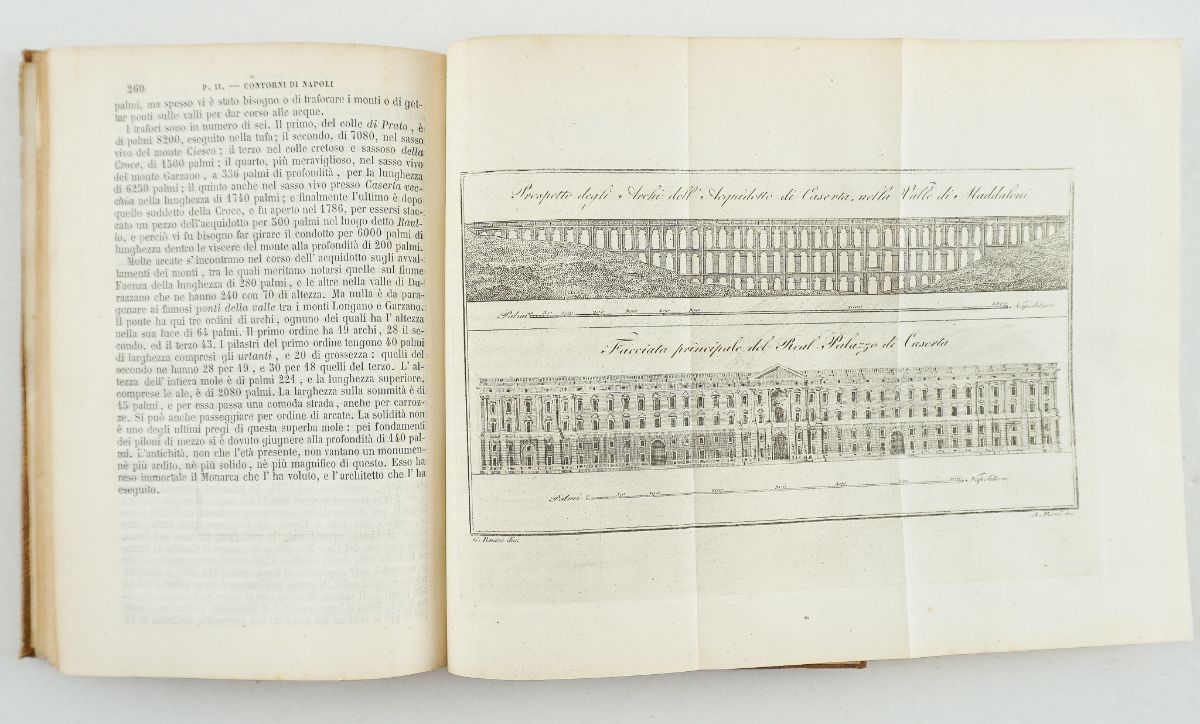 260 P. II. — CONTORNI DI NAPOLI
palmi, ma spesso vi è stato bisogno o di traforare i monti o di get-
tar ponti sulle valli per dar corso alle acque.
I trafori sono in numero di sei. Il primo, del colle di Prato, è
di palmi 8200, eseguito nella tufa; il secondo, di 7080, nel sasso
vivo del monte Ciesco; il terzo nel colle cretoso e sassoso della
Croce, di 1300 palmi; il quarto, più meraviglioso, nel sasso vivo
del monte Garzano, a 336 palmi di profondità, per la lunghezza
di 6250 palmi; il quinto anche nel sasso vivo presso Caserta vec-
chia nella lunghezza di 1740 palmi; e finalmente l'ultimo è dopo
quello suddetto della Croce, e fu aperto nel 1786, per essersi stac-
cato un pezzo dell'acquidotto per 500 palmi nel luogo detto
e perciò vi fu bisogno far girare il condotto per 6000 palmi di
lunghezza dentro le viscere del monte alla profondità di 200 palmi.
Molte arcate s'incontrano nel corso dell'acquidotto sugli avval-
lamenti dei monti, tra le quali meritano notarsi quelle sul fiume
Faenza della lunghezza di 280 palmi, e le altre nella valle di Du-
razzano che ne hanno 240 con 70 di altezza. Ma nulla è da para-
gonare ai famosi ponti della valle tra i monti Longano e Garzano.
Il ponte ha qui tre ordini di archi, ognuno dei quali ha l'altezza
nella sua luce di 64 palmi. Il primo ordine ha 19 archi, 28 il se-
condo, ed il terzo 43. I pilastri del primo ordine tengono 40 palmi
di larghezza compresi gli urtanti, e 20 di grossezza: quelli del
secondo ne hanno 28 per 19, e 30 per 18 quelli del terzo. L'al-
tezza dell'intiera mole è di palmi 221, e la lunghezza superiore,
comprese le ale, è di 2080 palmi. La larghezza sulla sommità è di
45 palmi, e per essa passa una comoda strada, anche per carroz-
ze. Si può anche passeggiare per ordine di arcate. La solidità non
è uno degli ultimi pregi di questa superba mole: pei fondamenti
dei piloni di mezzo si è dovuto giugnere alla profondità di 140 pal-
mi. L'antichità, non che l'età presente, non vantano un monumen-
nè più ardito, nè più solido, nè più magnifico di questo. Esso ha
reso immortale il Monarca che l'ha voluto, e l'architetto che l'ha
eseguito.
Prospetto degli Archi dell'Acquidotto di Caserta, nella Valle di Maddaloni
Palmi Napolitani
Facciata principale del Real Palazzo di Caserta
Palmi Napolitani
G. Russo dis.